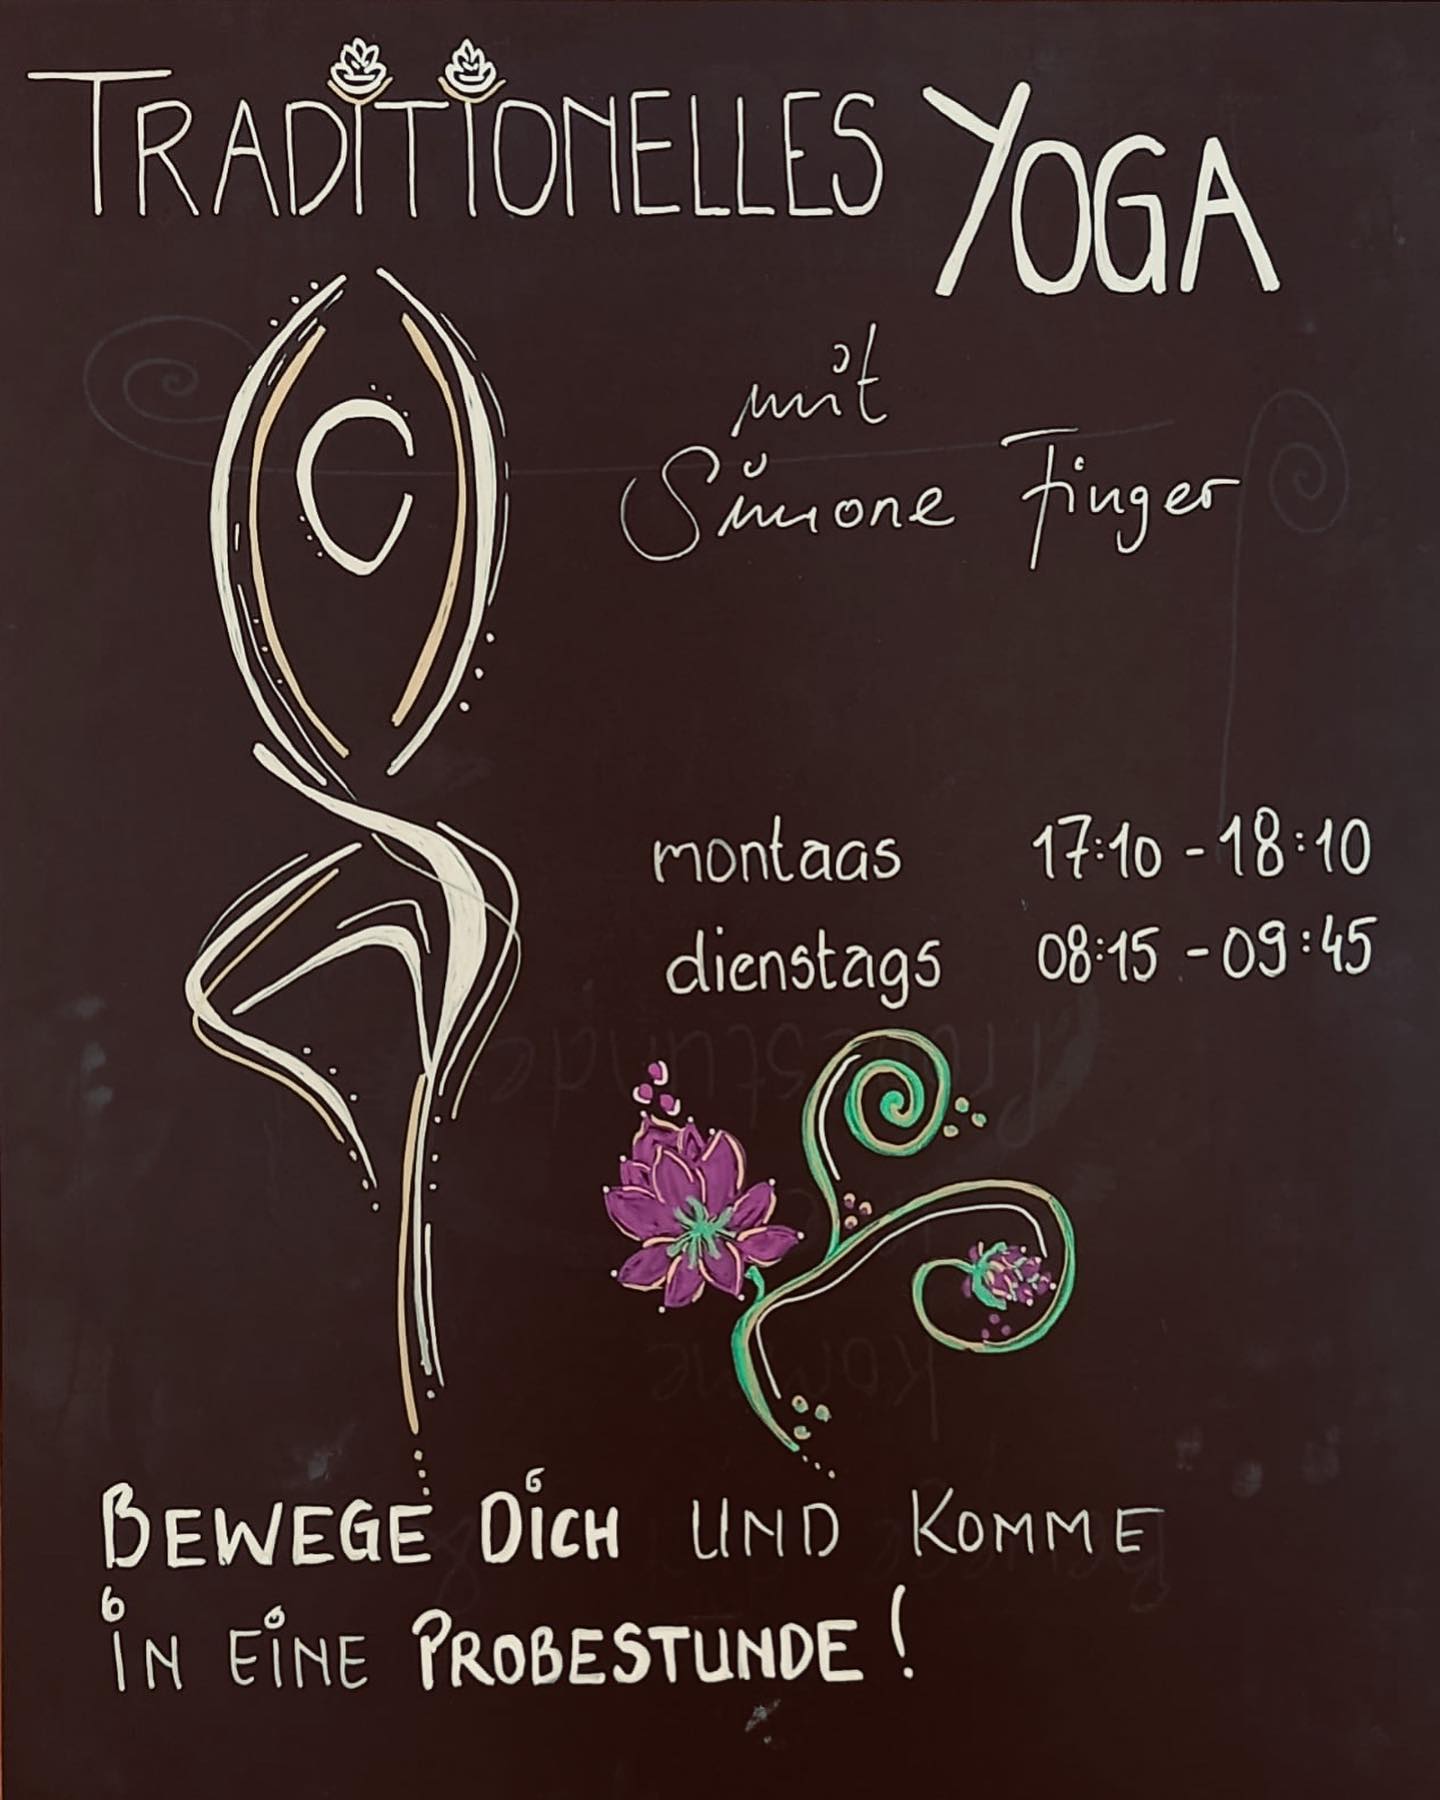 TRADITIONELLES YOGA
mit
Simone Finger
montaas 17:10 - 18:10
dienstags 08:15 - 09:45
BEWEGE DICH UND KOMME
IN EINE PROBESTUNDE!